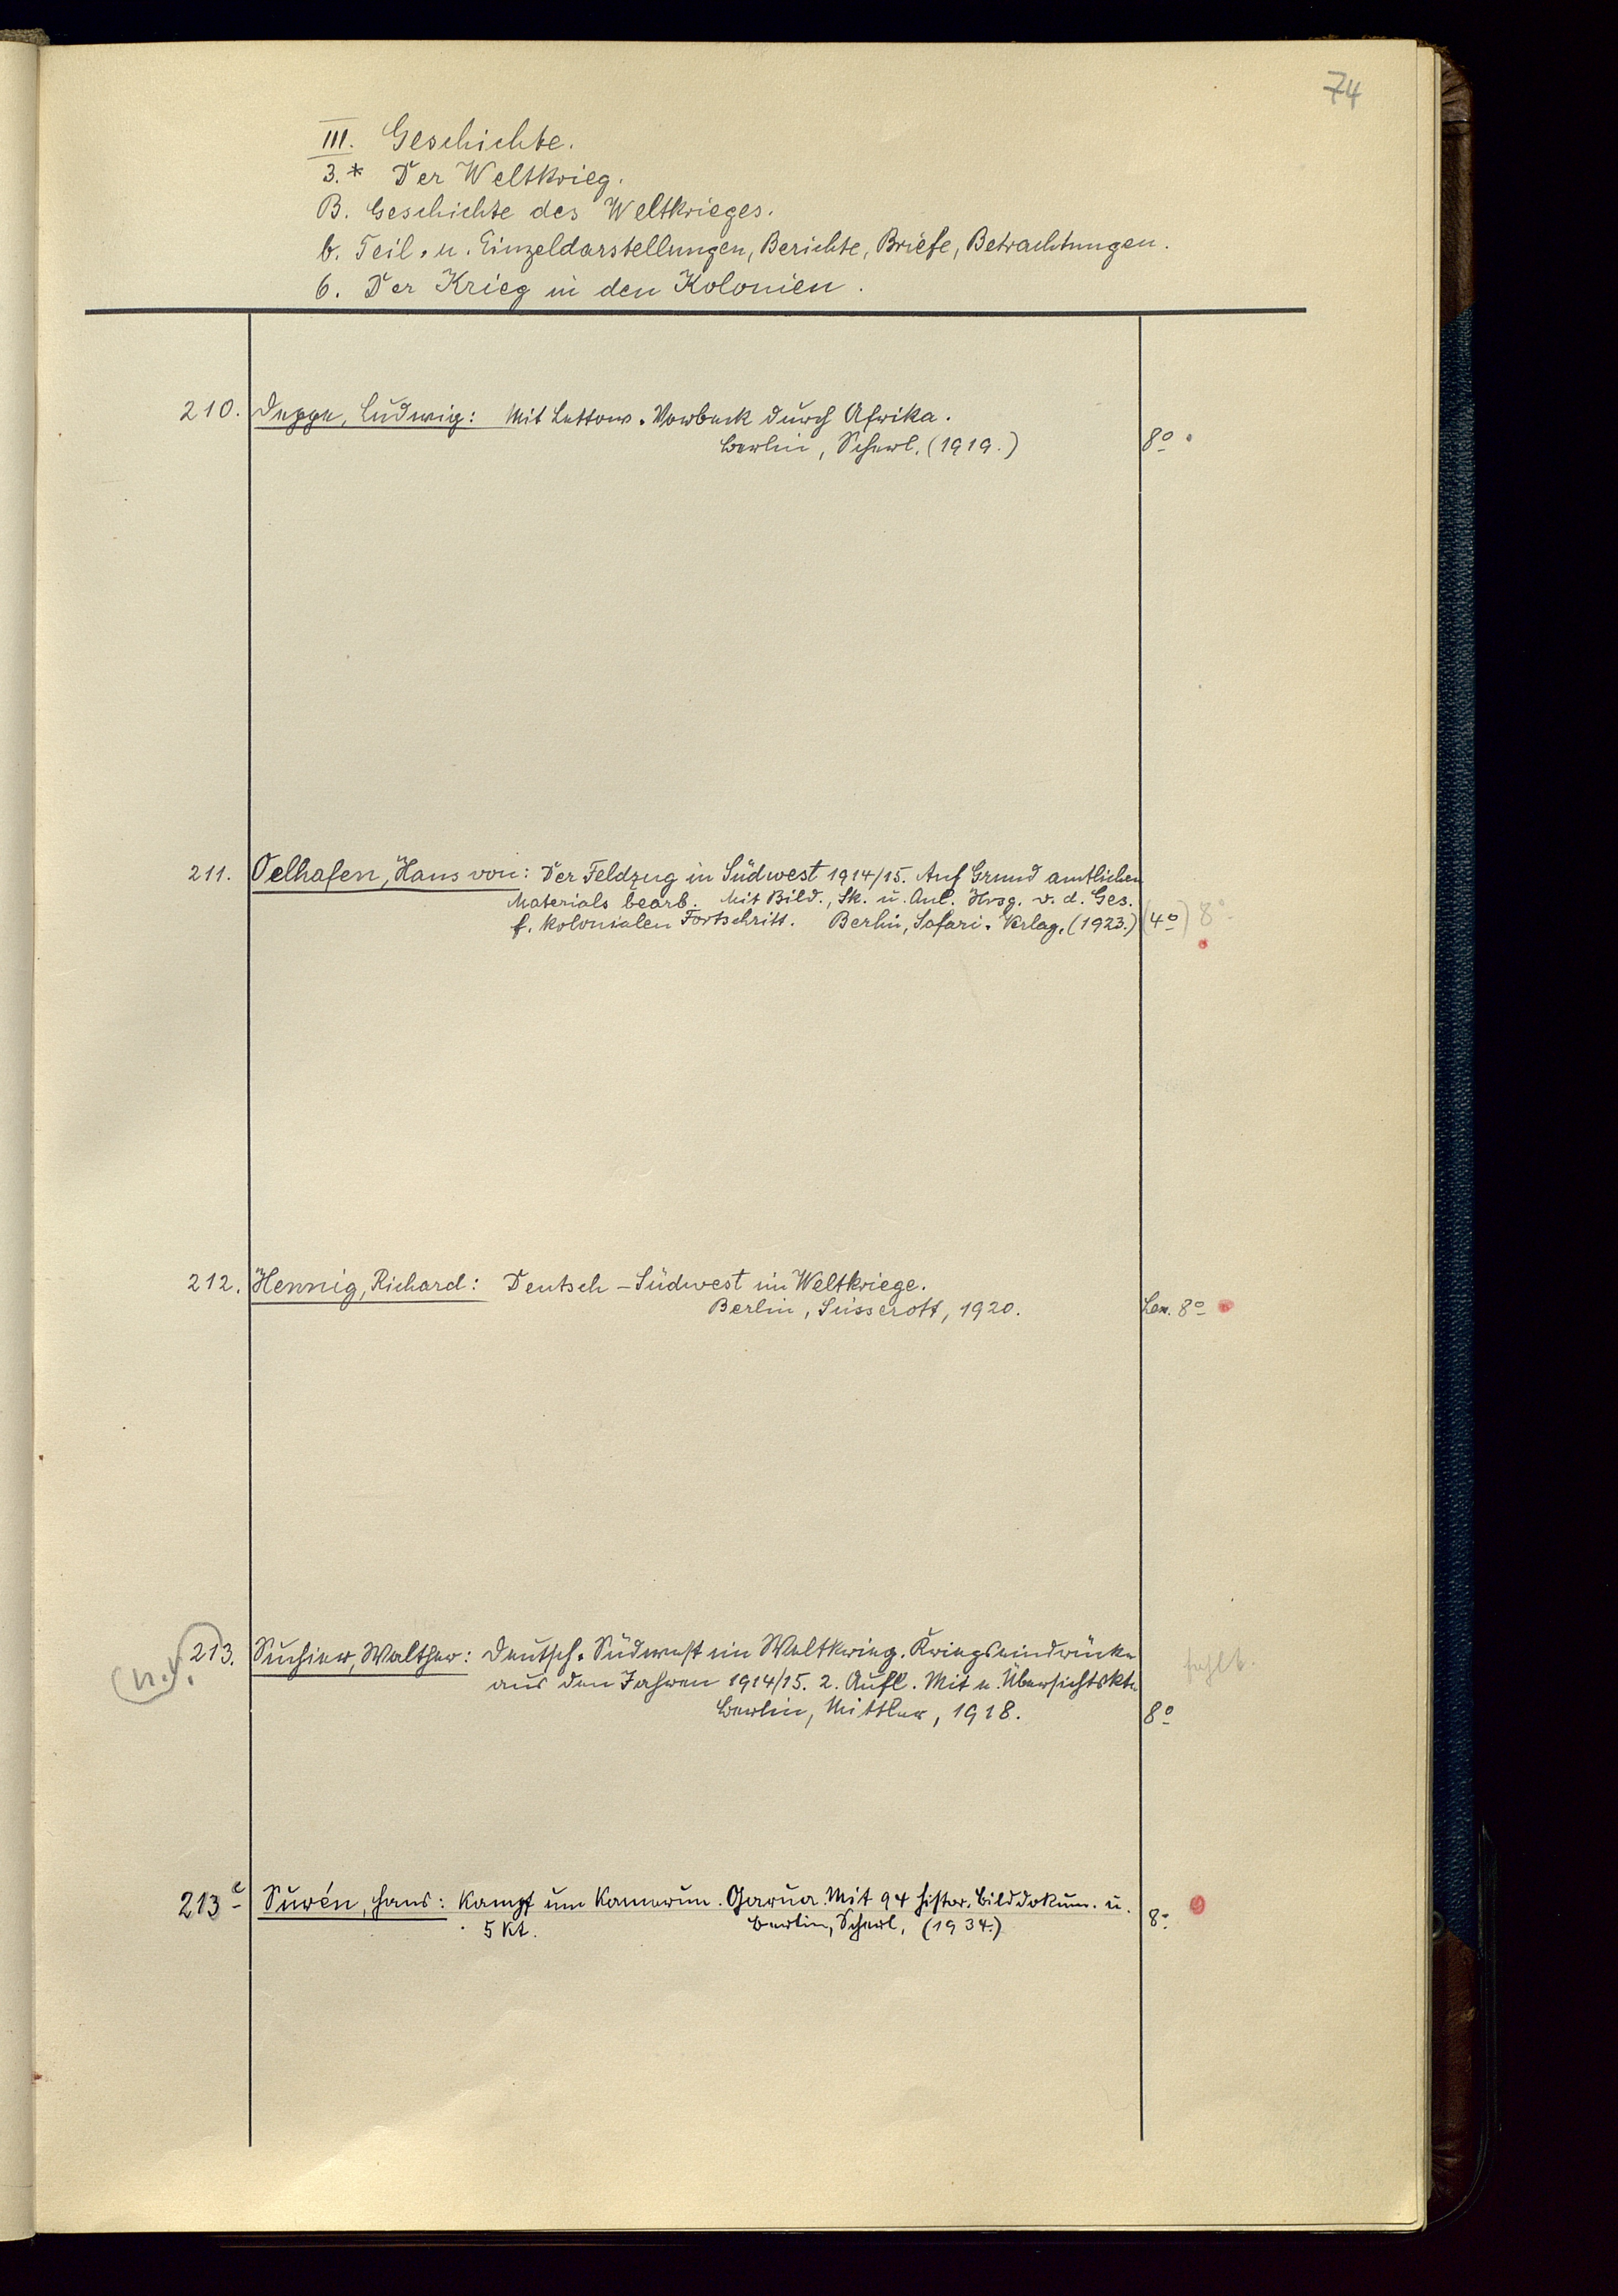 74
III. Geschichte.
3.* Der Weltkrieg.
B. Geschichte des Weltkrieges.
b. Teil- u. Einzeldarstellungen, Berichte, Briefe, Betrachtungen.
6. Der Krieg in den Kolonien.
210. Deppe, Ludwig: Mit Lettow-Vorbeck durch Afrika.
Berlin, Scherl, (1919.) 8°
211. Oelhafen, Hans von: Der Feldzug in Südwest 1914/15. Auf Grund amtlichen
Materials bearb. Mit Bild., Sk. u. Anl. Hrsg. v. d. Ges.
f. kolonialen Fortschritt. Berlin, Safari-Verlag, (1923.) (4°) 8°
212. Hennig, Richard: Deutsch-Südwest im Weltkriege.
Berlin, Süsserott, 1920. Lex. 8°
213. Suchier, Walther: Deutsch-Südwest im Weltkrieg. Kriegseindrücke fehlt.
(n.v.) aus den Jahren 1914/15. 2. Aufl. Mit e. Übersichtskte
Berlin, Mittler, 1918. 8°
213 e Surén, Hans: Kampf um Kamerun. Garua. Mit 94 histor. Bilddokum. u.
5 Kt. Berlin, Scherl, (1934.) 8°